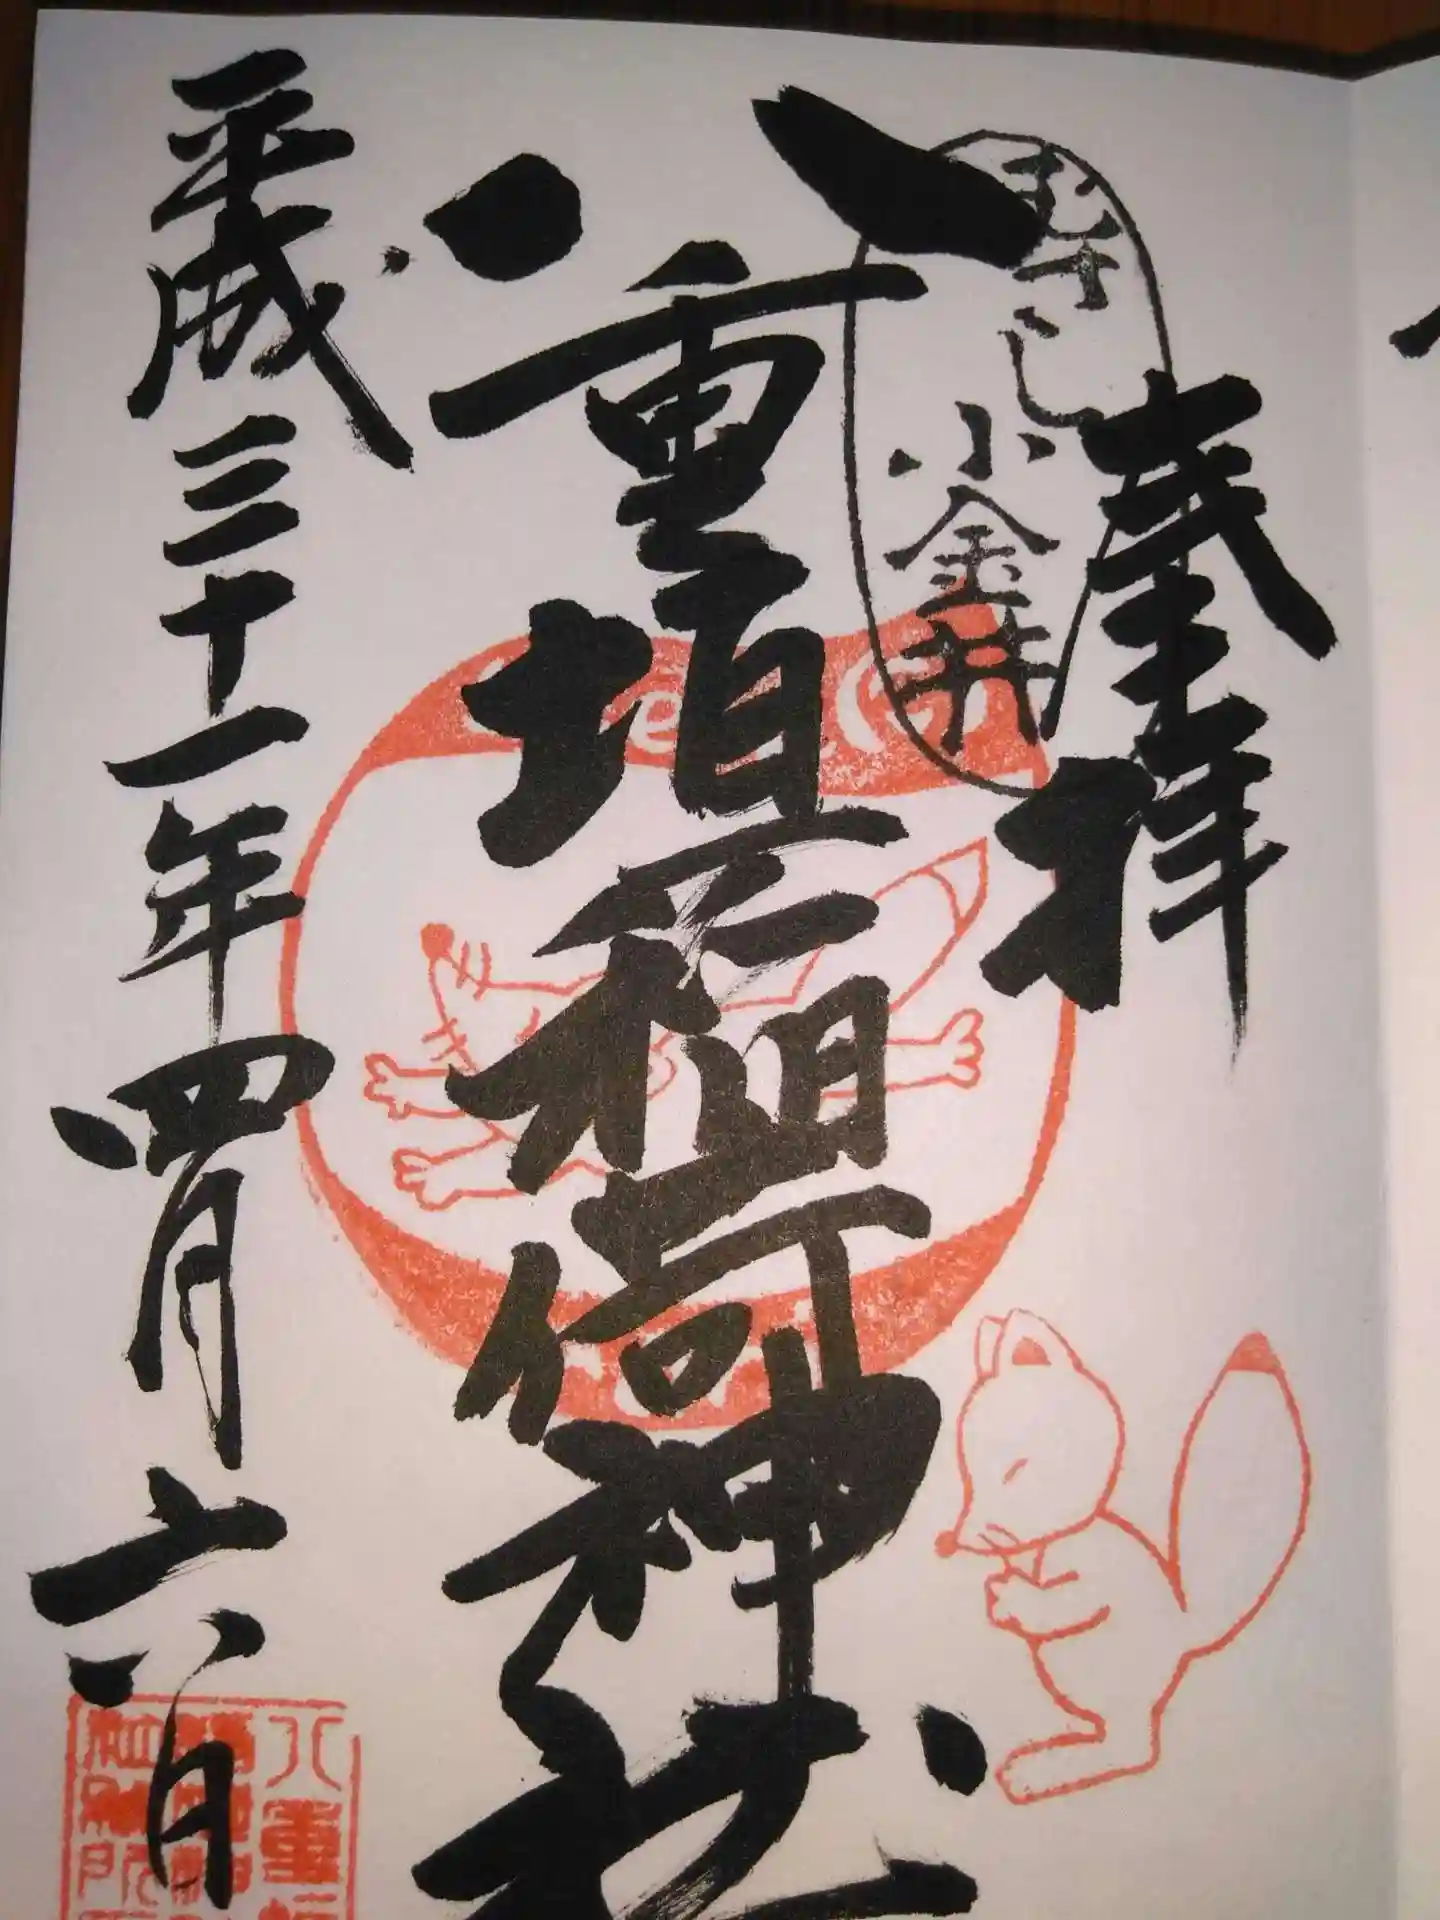 奉拝
むさし小金井
八重垣稲荷神社
平成三十一年四月六日
八重垣